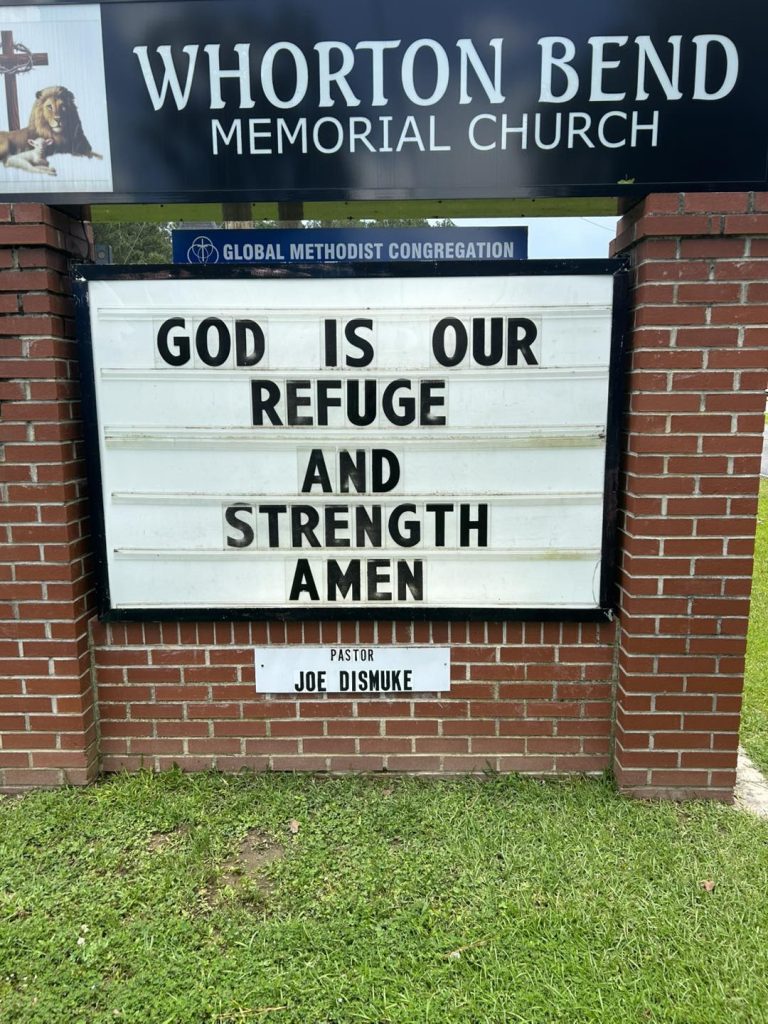 WHORTON BEND
MEMORIAL CHURCH
GLOBAL METHODIST CONGREGATION
GOD IS OUR
REFUGE
AND
STRENGTH
AMEN
PASTOR
JOE DISMUKE